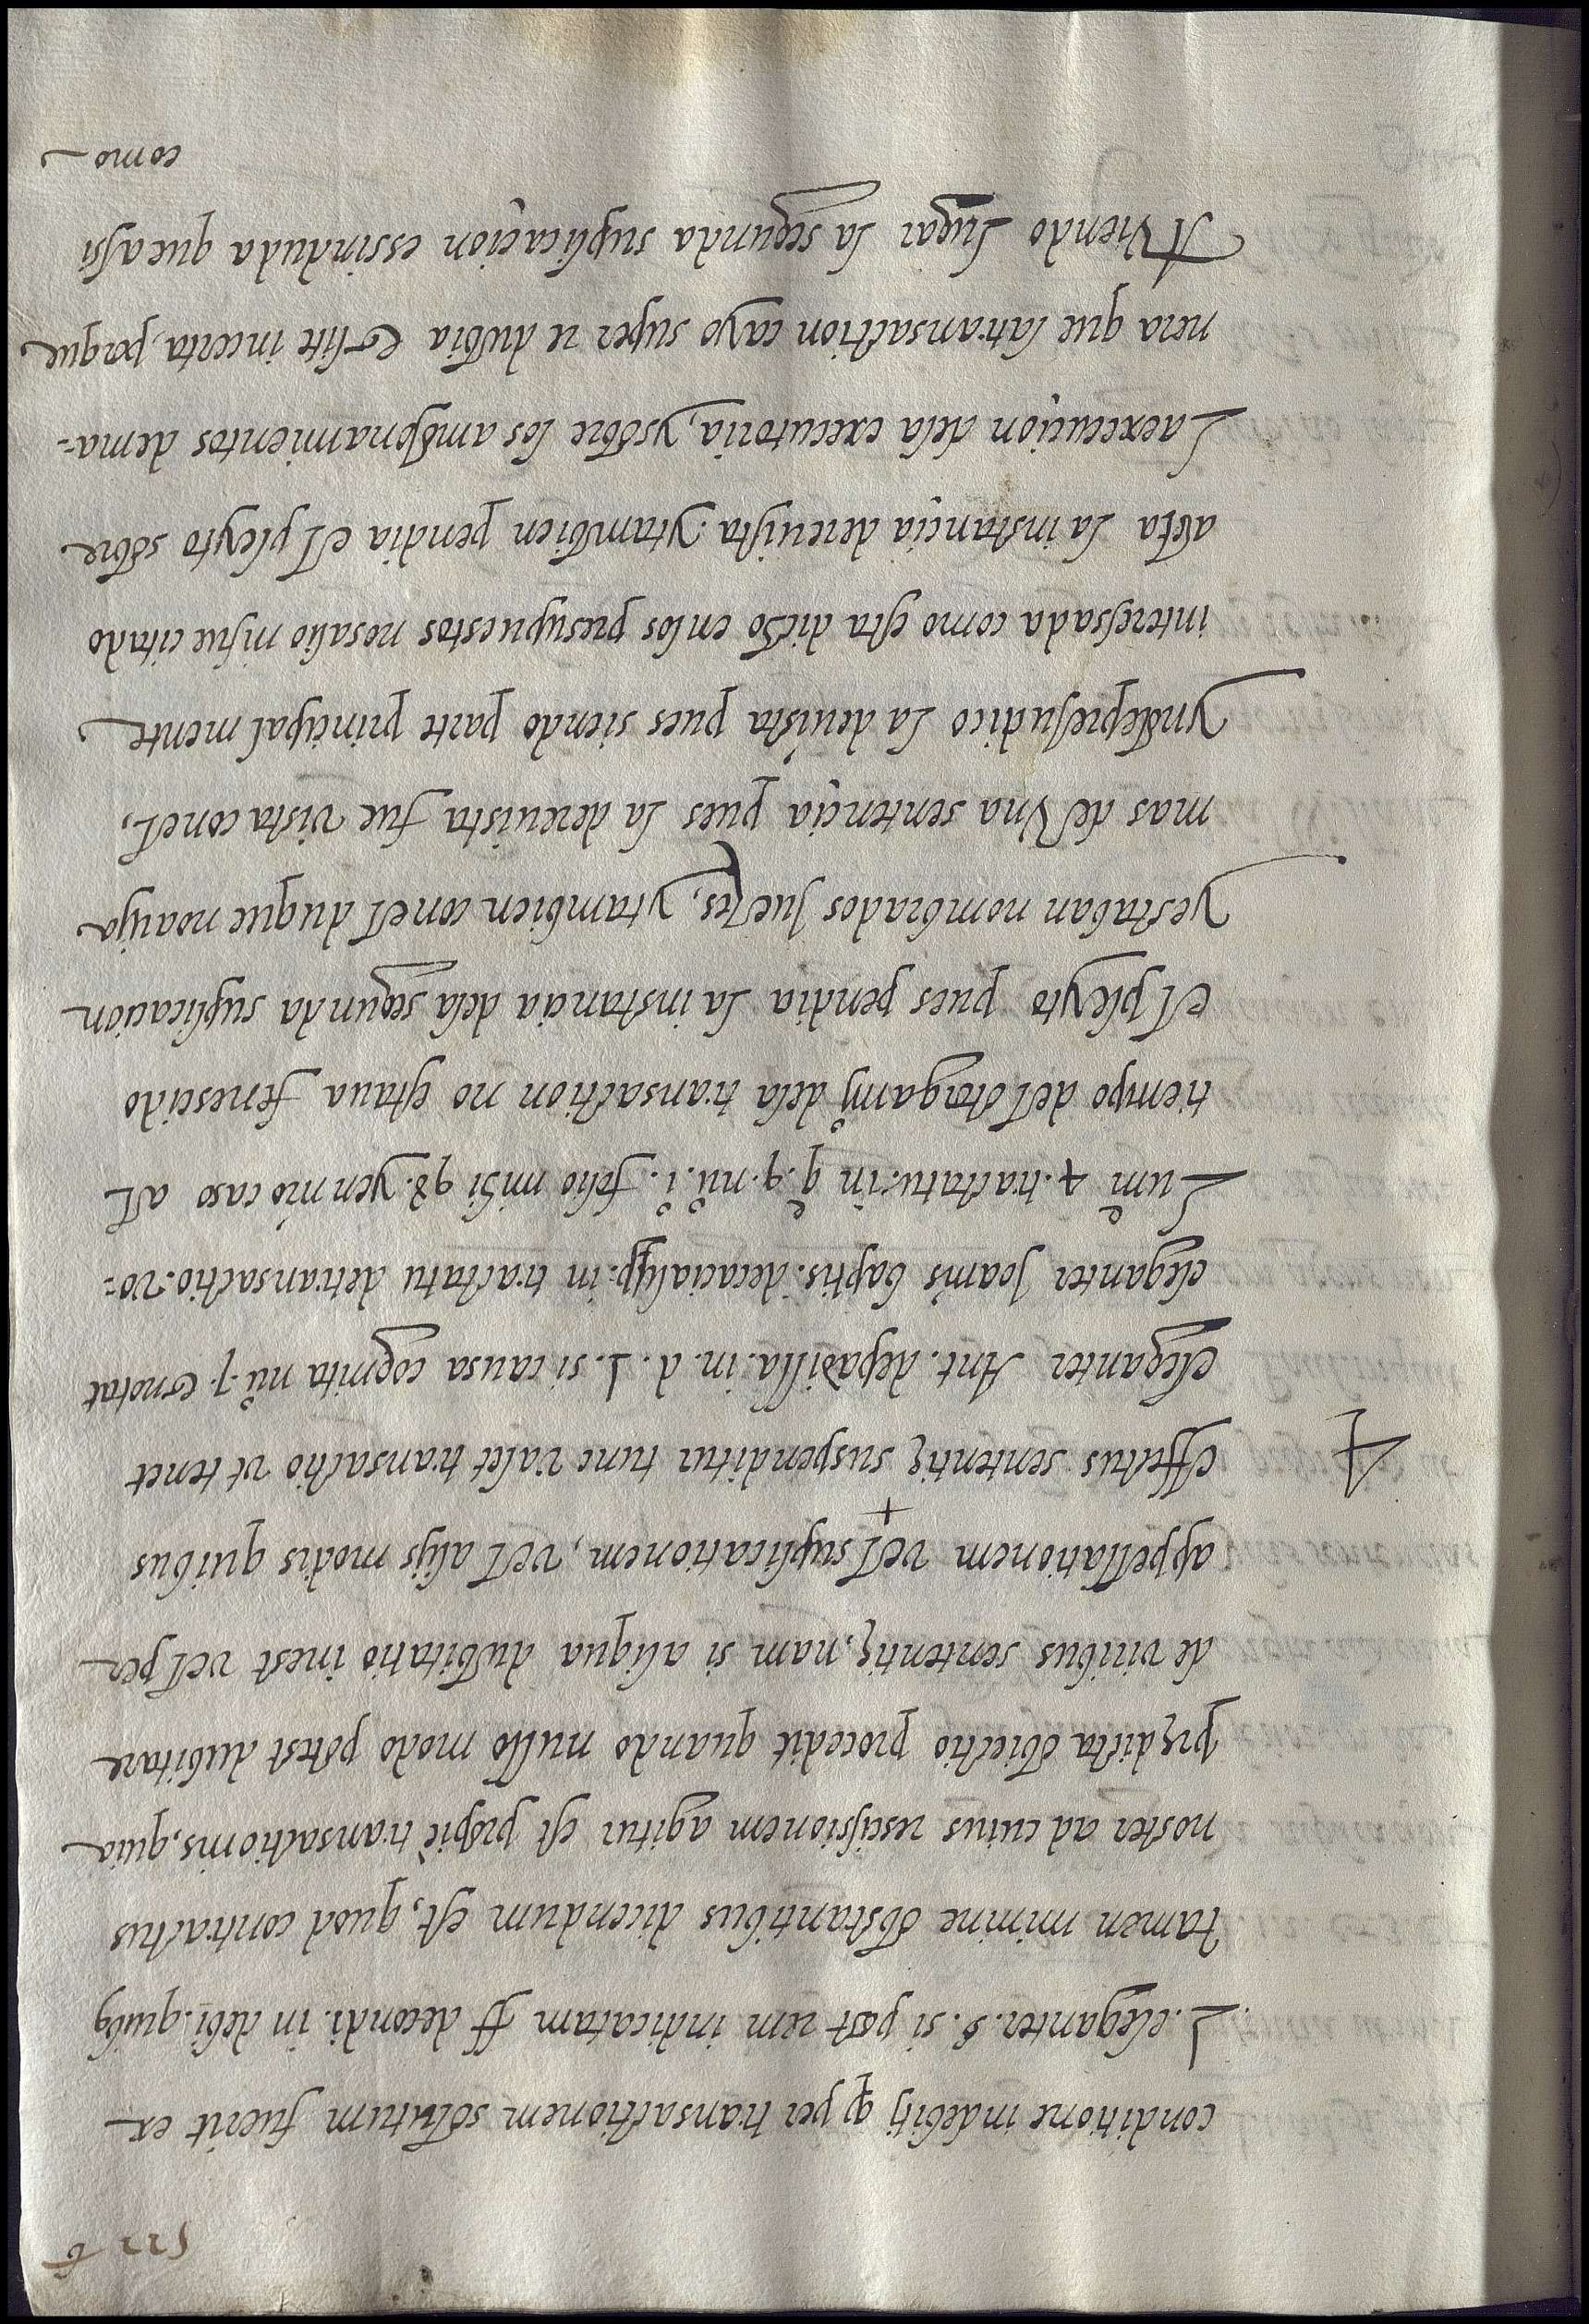 522 6
conditione indebiti q per transactionem solutum fuerit ex
L. eleganter. §. si post rem iudicatam ff de condi. in debi. quibus
tamen minime obstantibus dicendum est, quod contractus
noster ad cuius rescissionem agitur est propie transactionis, quia
prędicta obiectio procedit quando nullo modo potest dubitare
de viribus sententię, nam si aliqua dubitatio inest vel per
appellationem vel suplicationem, vel alijs modis quibus
effectus sententię suspenditur tunc valet transactio vt tenet
eleganter Ant. de padilla. in. d. l. si causa cognita nu. 7. & notat
eleganter Joanis baptis. de in tractatu de transactio. vo:
Lum 4. tractatu. in q. 9. nu. 1. folio mihi 98. y en nro caso al
tiempo del otorgamio dela transaction no estaua fenescido
el pleyto pues pendia la instancia dela segunda suplicacion
y estaban nombrados Juezes, y tambien con el duque no auja
mas de vna sentençia pues la de reuista fue vista con el,
y no le prejudico la de uista pues siendo parte principal mente
interessada como esta dicho en los presupuestos no salio ni fue citado
a esta la instançia de reuista. y tambien pendia el pleyto sobre
La execuçion dela executoria, y sobre los amojonamientos de ma-
nera que la transaction cayo super re dubia & lite incerta, porque
A viendo lugar la segunda suplicaçion es sin duda que assi
como